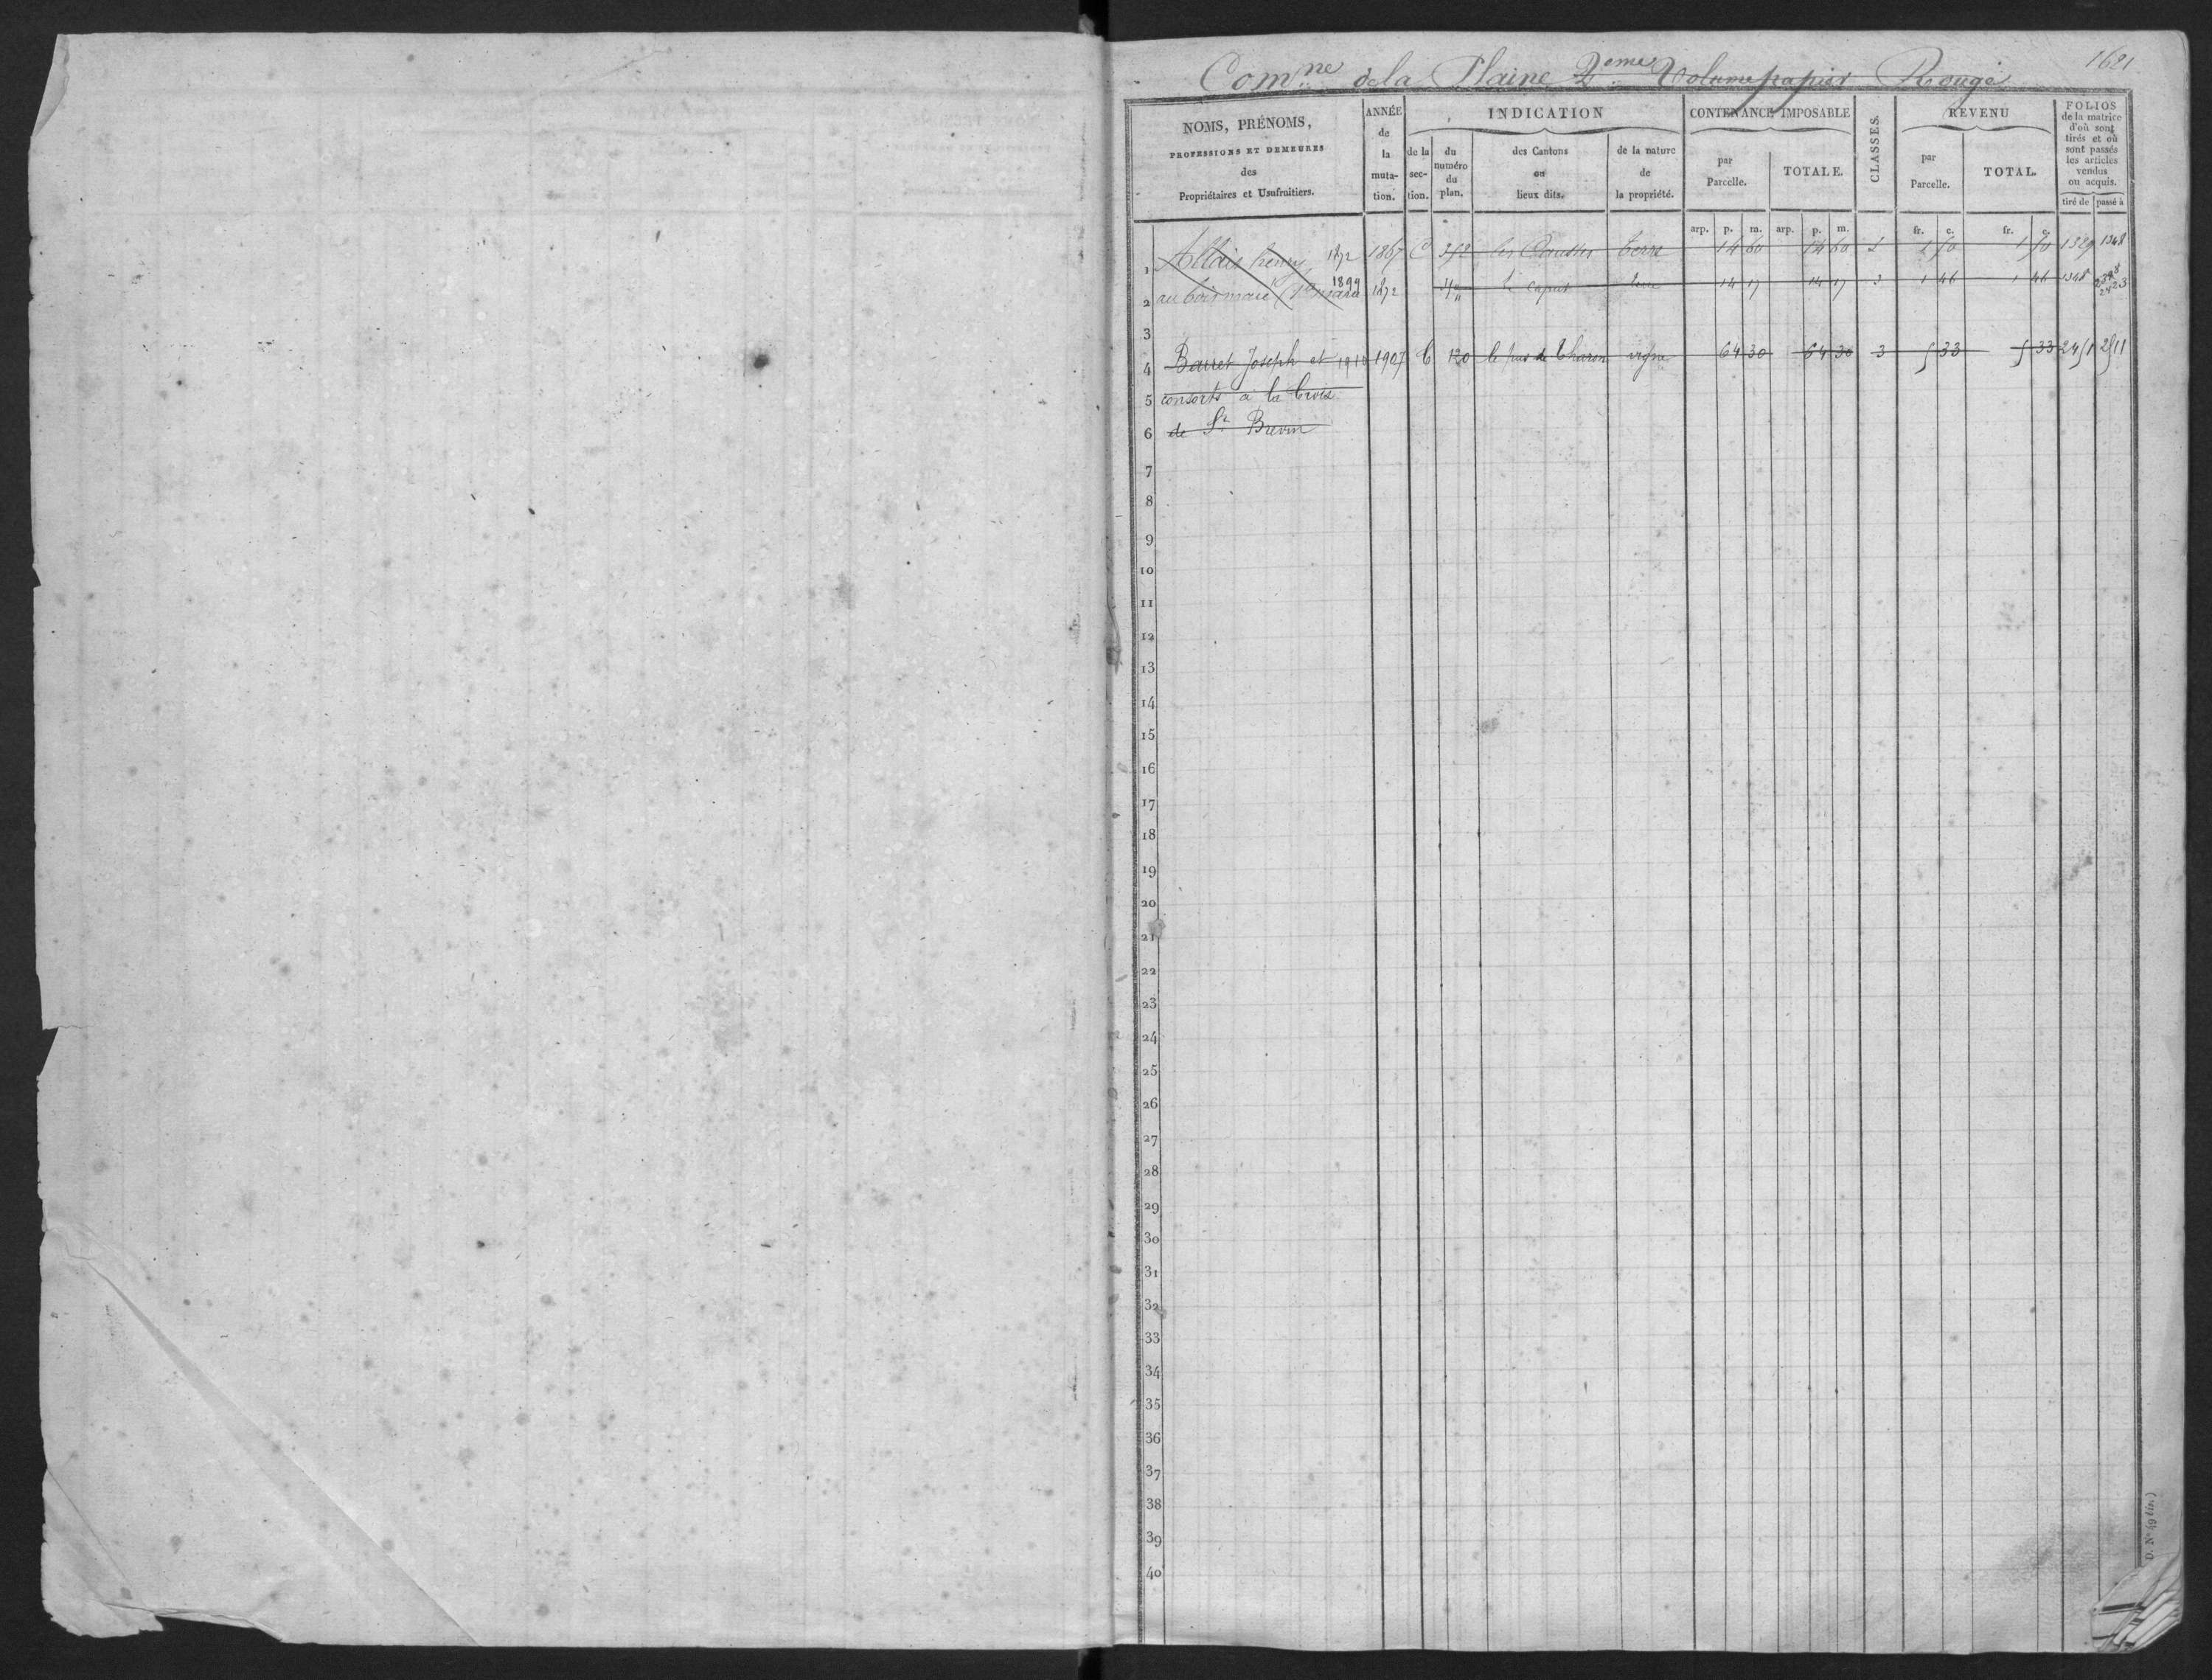 1621
Com.ne de la Plaine 2eme Volume papier Rouge
NOMS, PRÉNOMS,
PROFESSIONS ET DEMEURES
des
Propriétaires et Usufruitiers.
ANNÉE
de
la
muta-
tion.
INDICATION
de la
sec-
tion.
du
numéro
du
plan.
des Cantons
ou
lieux dits.
de la nature
de
la propriété.
CONTENANCE IMPOSABLE
par
Parcelle.
TOTALE.
CLASSES.
REVENU
par
Parcelle.
TOTAL.
FOLIOS
de la matrice
d'où sont
tirés et où
sont passés
les articles
vendus
ou acquis.
tiré de passé à
arp. p. m. arp. p. m. fr. c. fr. c.
1 Allais henry 1872 1867 terre 14 60 14 60 1329 1348
2 au 1899 1872 14 17 14 17 3 1 46 1 46 1348 2423
3
4 Barret Joseph et 1910 1907 C 120 le de Tharon vigne 64 30 64 30 3 5 33 5 33 2451 2511
5 consorts à la Croix
6 de St Brevin
7
8
9
10
11
12
13
14
15
16
17
18
19
20
21
22
23
24
25
26
27
28
29
30
31
32
33
34
35
36
37
38
39
40
D. No 49 (in.)